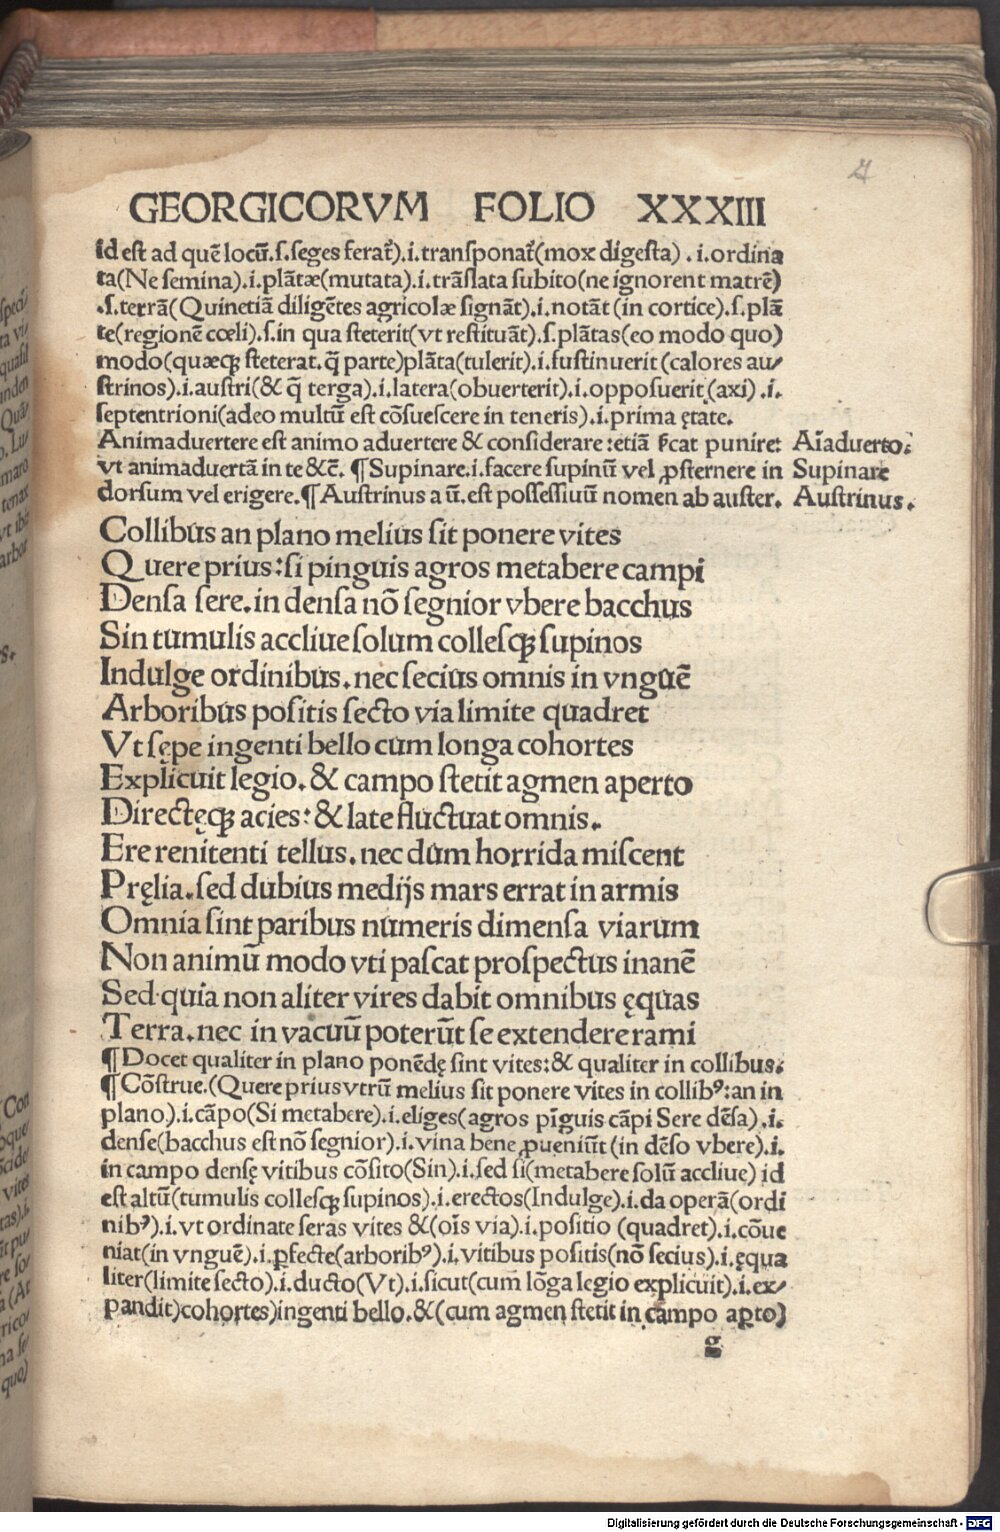 GEORGICORVM FOLIO XXXIII
id est ad quē locū.ſ.ſeges ferat᷑).i.tranſponat᷑(mox digeſta).i.ordina
ta(Ne ſemina).i.plātæ(mutata).i.trāſlata ſubito(ne ignorent matrē)
.ſ.terrā(Quinetiā diligētes agricolæ ſignāt).i.notāt (in cortice).ſ.plā
te(regionē cœli).ſ.in qua ſteterit(vt reſtituāt).ſ.plātas(eo modo quo)
modo(quæqꝫ ſteterat.q̄ parte)plāta(tulerit).i.ſuſtinuerit (calores au/
ſtrinos).i.auſtri(& q̄ terga).i.latera(obuerterit).i.oppoſuerit (axi) .i.
ſeptentrioni(adeo multū eſt cōſueſcere in teneris).i.prima ętate.
Animaduertere eſt animo aduertere & conſiderare:etiā ſcat punire: Aīaduerto.
vt animaduertā in te &c̄. ¶Supinare.i.facere ſupinū vel ꝓſternere in Supinare
dorſum vel erigere.¶Auſtrinus a ū.eſt poſſeſſiuū nomen ab auſter. Auſtrinus.
Collibus an plano melius ſit ponere vites
Quere prius:ſi pinguis agros metabere campi
Denſa ſere.in denſa nō ſegnior vbere bacchus
Sin tumulis accliue ſolum colleſqꝫ ſupinos
Indulge ordinibus.nec ſecius omnis in vnguē
Arboribus poſitis ſecto via limite quadret
Vt ſępe ingenti bello cum longa cohortes
Explicuit legio.& campo ſtetit agmen aperto
Directęqꝫ acies:& late fluctuat omnis.
Ere renitenti tellus.nec dum horrida miſcent
Pręlia.ſed dubius medijs mars errat in armis
Omnia ſint paribus numeris dimenſa viarum
Non animū modo vti paſcat proſpectus inanē
Sed quia non aliter vires dabit omnibus ęquas
Terra.nec in vacuū poterūt ſe extendere rami
¶Docet qualiter in plano ponēdę ſint vites:& qualiter in collibus.
¶Cōſtrue.(Quere prius vtrū melius ſit ponere vites in collibꝰ:an in
plano).i.cāpo(Si metabere).i.eliges(agros pīguis cāpi Sere dēſa).i.
denſe(bacchus eſt nō ſegnior).i.vina bene ꝓueniūt (in dēſo vbere).i.
in campo denſę vitibus cōſito(Sin).i.ſed ſi(metabere ſolū accliue) id
eſt altū(tumulis colleſqꝫ ſupinos).i.erectos(Indulge).i.da operā(ordi
nibꝰ).i.vt ordinate ſeras vites &(oīs via).i.poſitio (quadret).i.cōue
niat(in vnguē).i.ꝑfecte(arboribꝰ).i.vitibus poſitis(nō ſecius).i.ęqua
liter(limite ſecto).i.ducto(Vt).i.ſicut(cum lōga legio explicuit).i.ex/
pandit)cohortes)ingenti bello.&(cum agmen ſtetit in campo aꝑto)
g
Digitalisierung gefördert durch die Deutsche Forschungsgemeinschaft - DFG